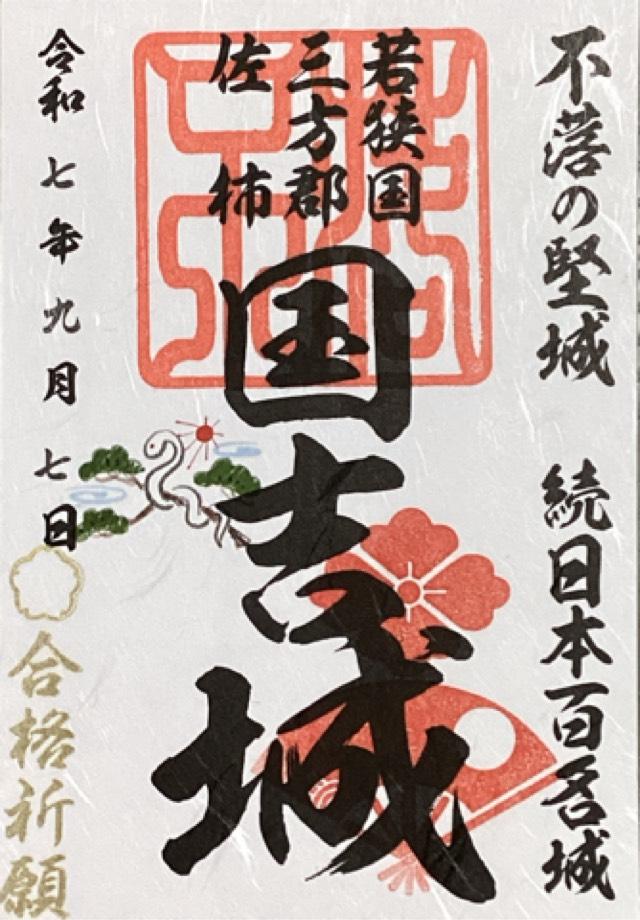 不落の堅城 続日本百名城
若狭国
三方郡
佐柿
国吉城
令和七年九月七日
合格祈願